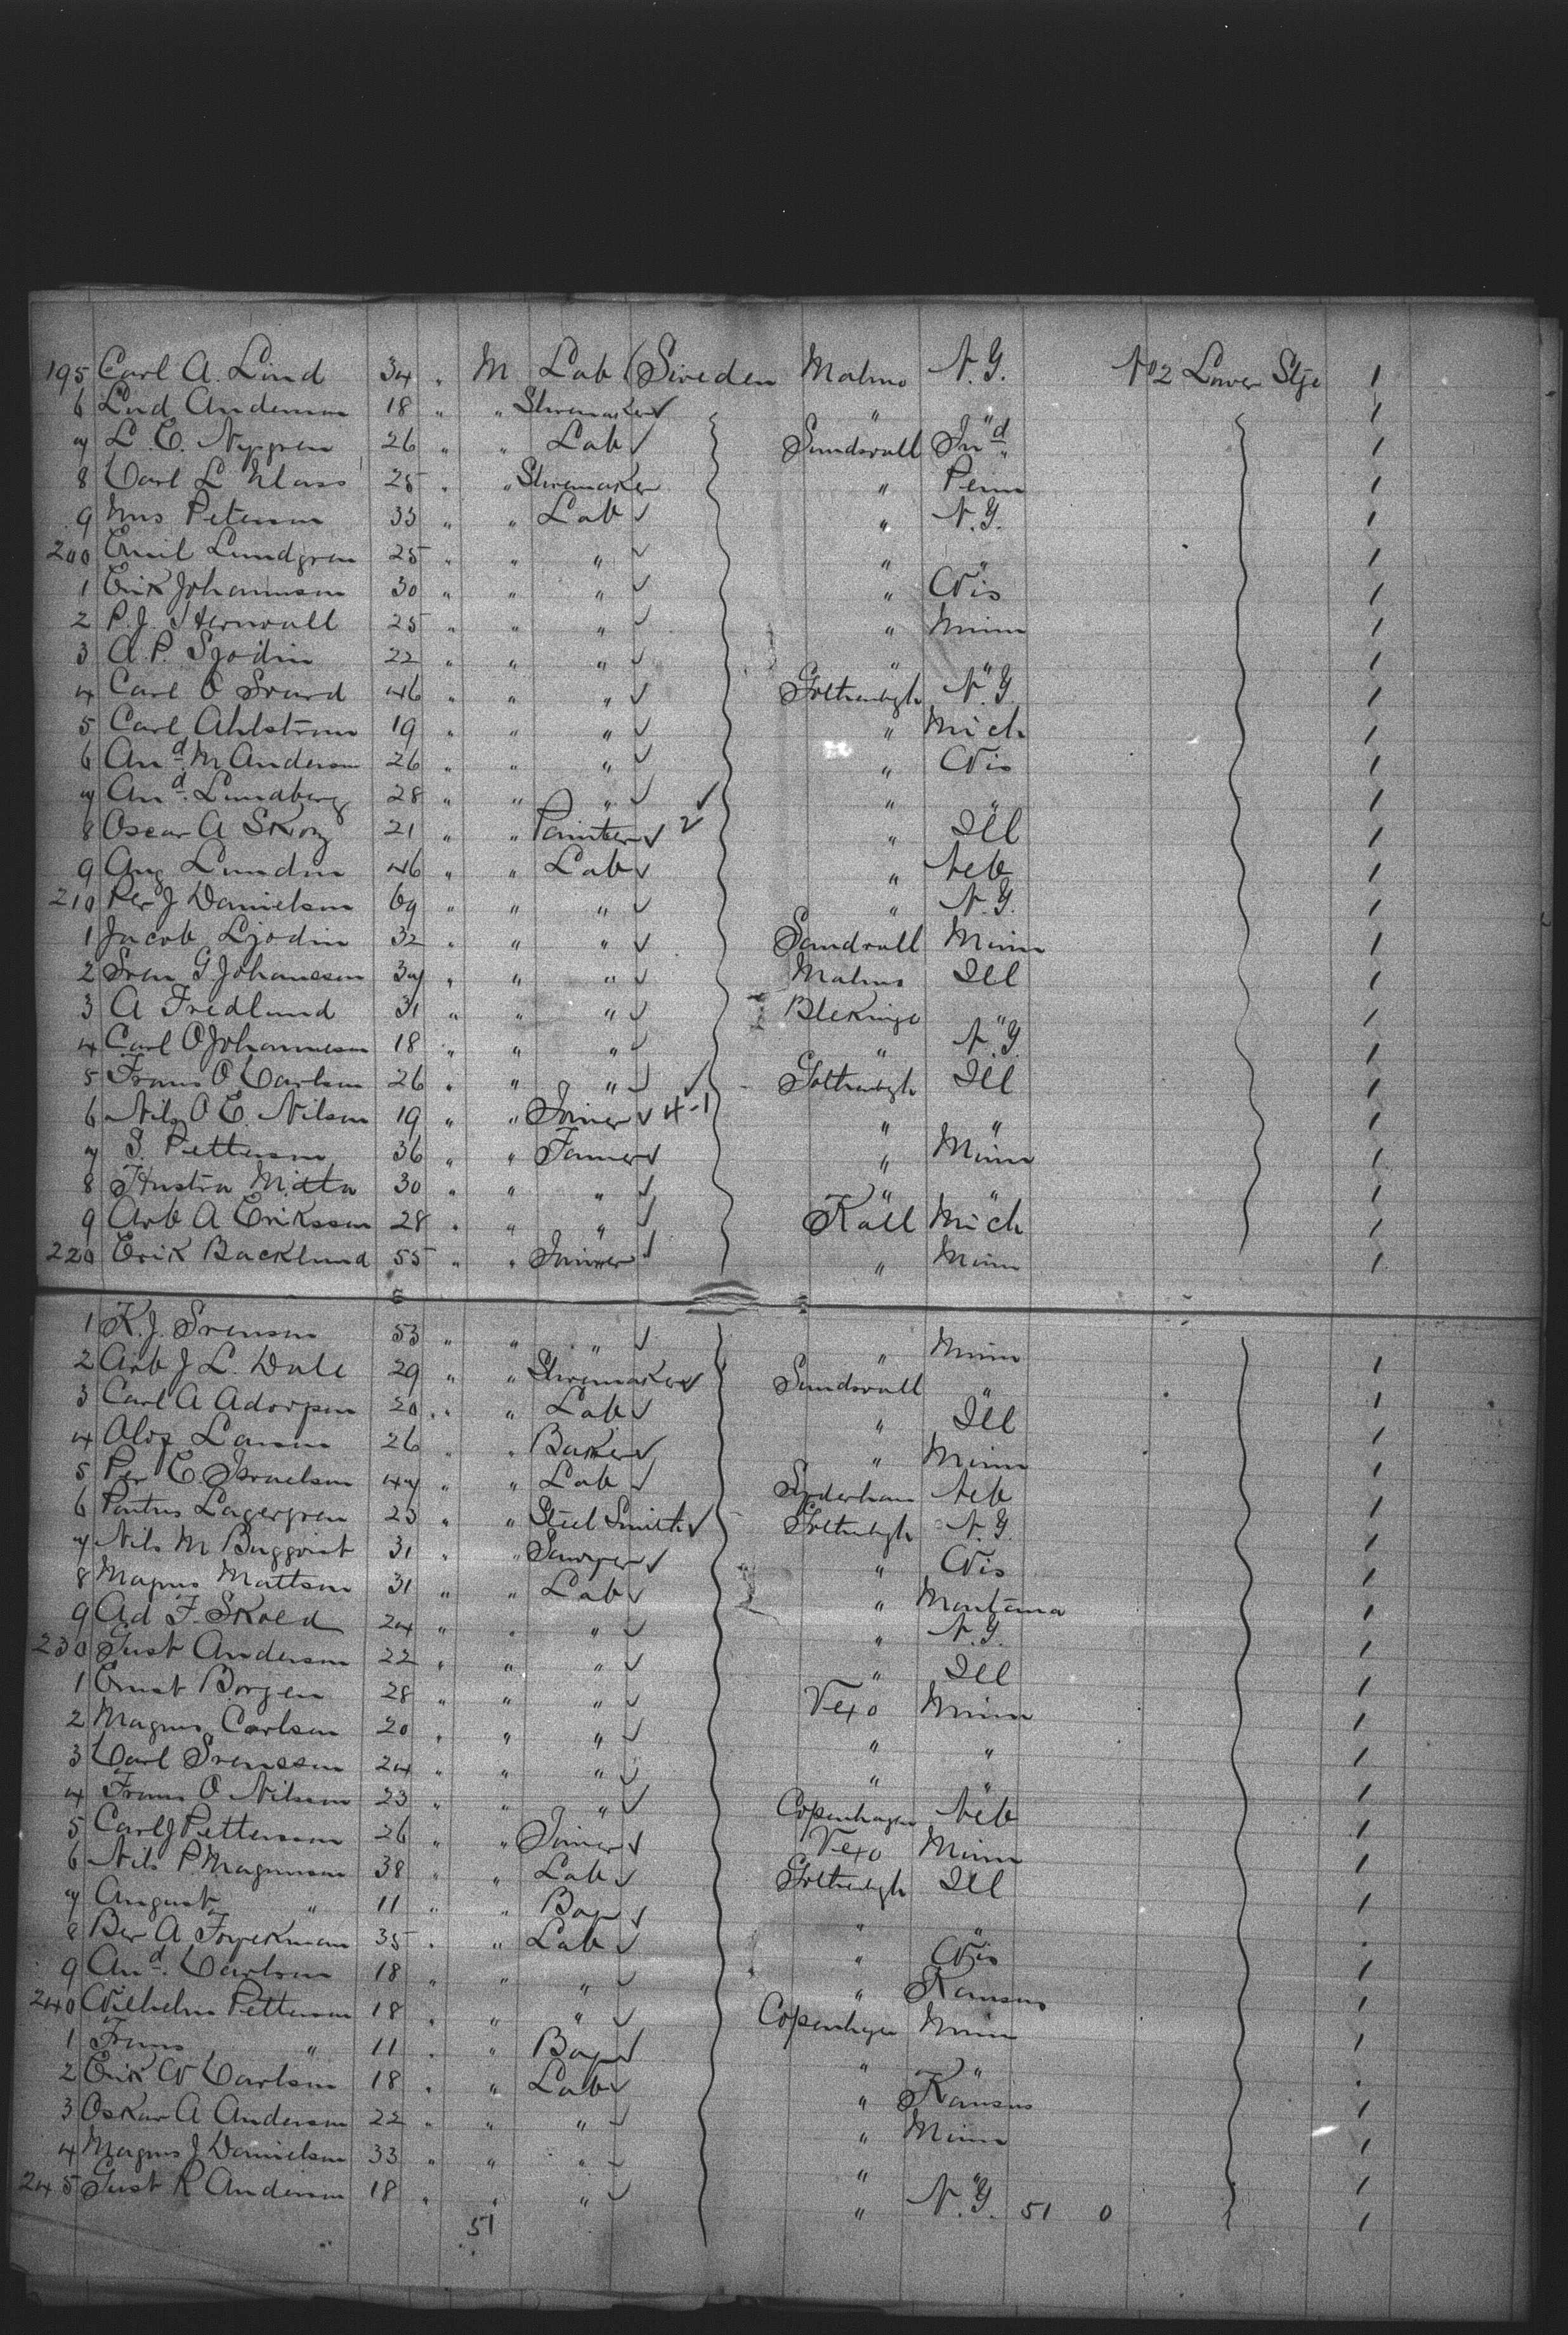 195 Carl A. Lind 34 " M Lab (Sweden Malmo N.Y. No2 Lower Stge 1
6 Lud Anderson 18 " " Shoemaker ✓ " " 1
7 L. E. Nygren 26 " " Lab ✓ Sundsvall Ind. 1
8 Carl L Klass 25 " " Shoemaker " Penn 1
9 Mns Peterson 33 " " Lab ✓ " N.Y. 1
200 Emil Lundgren 25 " " " ✓ " " 1
1 Erik Johannson 30 " " " ✓ " Wis 1
2 P. J. Hernvall 25 " " " ✓ " Minn 1
3 A. P. Sjodin 22 " " " ✓ " " 1
4 Carl O Svard 46 " " " ✓ Gothenbgh N.Y. 1
5 Carl Ahlstrom 19 " " " ✓ " Mich 1
6 And M Anderson 26 " " " ✓ " Wis 1
7 And. Lundberg 28 " " " ✓ ✓ " " 1
8 Oscar A Skog 21 " " Painter ✓ 2 " Ill 1
9 Aug Lundin 46 " " Lab ✓ " Neb 1
210 Per J Danielson 69 " " " ✓ " N.Y. 1
1 Jacob Ljodin 32 " " " ✓ Sundvall Minn 1
2 Sven G Johansson 37 " " " ✓ Malmo Ill 1
3 A Fredlund 31 " " " ✓ Blekinge " 1
4 Carl O Johanneson 18 " " " ✓ " N.Y. 1
5 Frans O Carlson 26 " " " ✓ ✓ Gothenbgh Ill 1
6 Nils O E. Nilson 19 " " Joiner ✓ 4-1 " " 1
7 S. Petterson 36 " " Farmer ✓ " Minn 1
8 Hustra Matta 30 " " " ✓ " " 1
9 Arb A Eriksson 28 " " " ✓ Kall Mich 1
220 Erik Backlund 55 " " Joiner ✓ " Minn 1
1 K. J. Svenson 53 " " " ✓ " Minn 1
2 Arb J L. Dale 29 " " Shoemaker ✓ Sundsvall " 1
3 Carl A 20 " " Lab ✓ " Ill 1
4 Larson 26 " " Baker ✓ " Minn 1
5 Per E. Israelson 47 " " Lab ✓ Soderham Neb 1
6 Pontus Lagergren 23 " " Steel Smith ✓ Gothenbgh N.Y. 1
7 Nils M Bergqvist 31 " " Sawyer ✓ " Wis 1
8 Magnus Mattson 31 " " Lab ✓ " Montana 1
9 Ad F. Skold 24 " " " ✓ " N.Y. 1
230 Gust Anderson 22 " " " ✓ " Ill 1
1 Ernst Borgen 28 " " " ✓ Vexo Minn 1
2 Magnus Carlson 20 " " " ✓ " " 1
3 Carl Svensson 24 " " " ✓ " " 1
4 Frans O Nilsson 23 " " " ✓ Copenhagen Neb 1
5 Carl J Petterson 26 " " Joiner ✓ Vexo Minn 1
6 Nils P. Magnusson 38 " " Lab ✓ Gothenbgh Ill 1
7 August " 11 " " Boy ✓ " " .
8 Ber A 35 " " Lab ✓ " Wis 1
9 And. Carlson 18 " " " ✓ " Kansas 1
240 Wilhelm Petterson 18 " " " ✓ Copenhagen Minn 1
1 Frans " 11 " " Boy ✓ " " .
2 Erik W Carlson 18 " " Lab ✓ " Kansas 1
3 Oskar A Anderson 22 " " " ✓ " Minn 1
4 Magnus J Danielson 33 " " " ✓ " " 1
245 Gust R Anderson 18 " " " ✓ " N.Y. 51 0 1
51